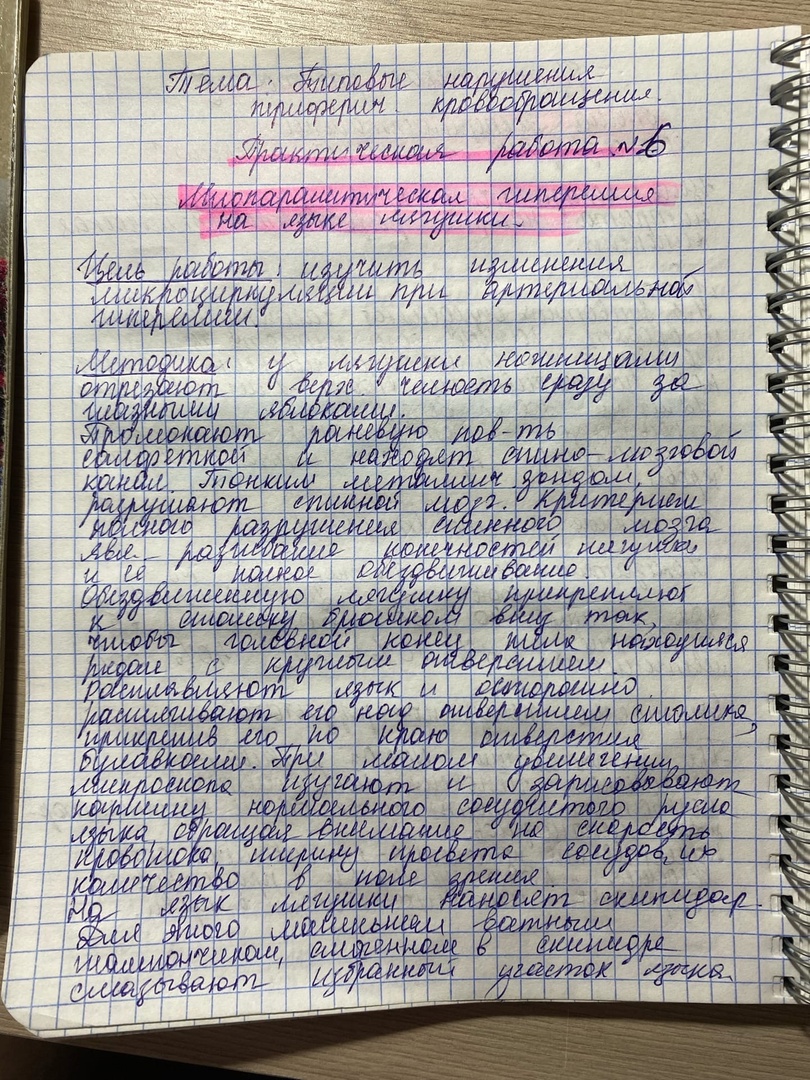 Тема: Типовые нарушения
периферич. кровообращения.
Практическая работа №6
Миопаралитическая гиперемия
на языке лягушки.
Цель работы: изучить изменения
микроциркуляции при артериальной
гиперемии.
Методика: у лягушки ножницами
отрезают верх. челюсть сразу за
глазными яблоками.
Промокают раневую пов-ть
салфеткой и находят спино-мозговой
канал. Тонким металлич зондом
разрушают спинной мозг. Критерием
полного разрушения спинного мозга
явл. конечностей лягушки
и ее полное обездвиживание.
Обездвиженную лягушку прикрепляют
к столику брюшком вниз так,
чтобы головной конец тела находился
рядом с круглым отверстием.
Расправляют язык и осторожно
растягивают его над отверстием столика,
прикрепив его по краю отверстия
булавками. При малом увеличении
микроскопа изучают и зарисовывают
картину нормального сосудистого русла
языка обращая внимание на скорость
кровотока, ширину просвета сосудов, их
количество в поле зрения.
На язык лягушки наносят скипидар.
Для этого маленьким ватным
тампончиком, смоченном в скипидре
смазывают избранный участок языка.